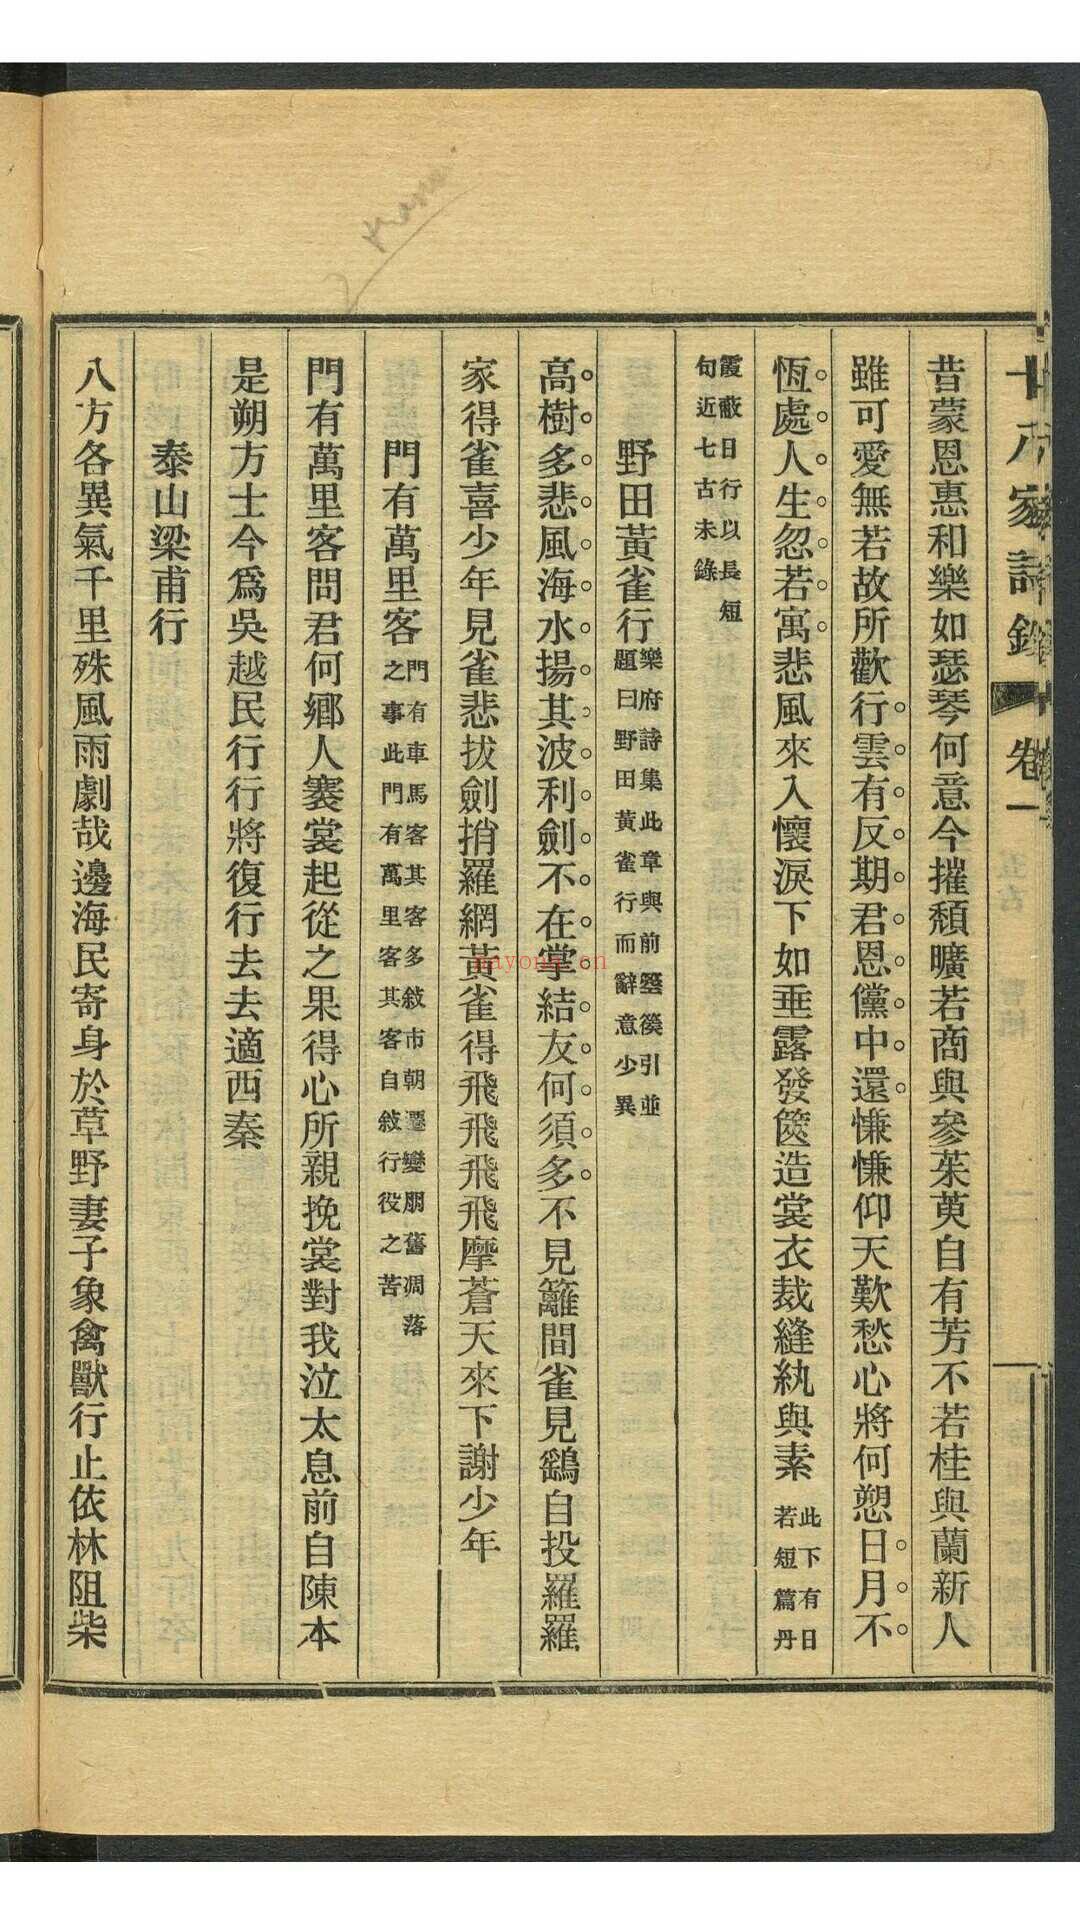 十八家詩鈔 卷一
昔蒙恩惠和樂如瑟琴何意今摧頹曠若商與參茱萸自有芳不若桂與蘭新人
雖可愛無若故所歡行雲有反期君恩儻中還慊慊仰天歎愁心將何愬日月不
恆處人生忽若寓悲風來入懷淚下如垂露發篋造裳衣裁縫紈與素
此下有日
若短篇丹
霞蔽日行以長短
句近七古未錄
野田黃雀行
樂府詩集此章與前箜篌引並
題曰野田黃雀行而辭意少異
高樹多悲風海水揚其波利劍不在掌結友何須多不見籬間雀見鷂自投羅羅
家得雀喜少年見雀悲拔劍捎羅網黃雀得飛飛飛飛摩蒼天來下謝少年
門有萬里客
門有車馬客其客多敘市朝遷變朋舊凋落
之事此門有萬里客其客自敘行役之苦
門有萬里客問君何鄉人褰裳起從之果得心所親挽裳對我泣太息前自陳本
是朔方士今爲吳越民行行將復行去去適西秦
泰山梁甫行
八方各異氣千里殊風雨劇哉邊海民寄身於草野妻子象禽獸行止依林阻柴
nayona.cn